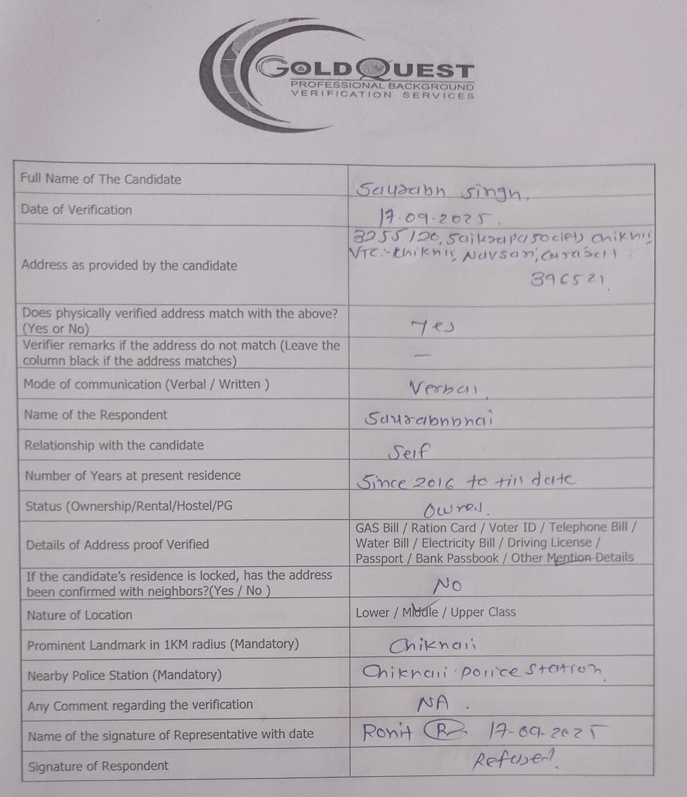 GOLDQUEST
PROFESSIONAL BACKGROUND
VERIFICATION SERVICES
Full Name of The Candidate Saurabh singh.
Date of Verification 17-09-2025.
Address as provided by the candidate 3255/120, Saikrapa society chikhli,
VTC:-Chikhli, Navsari, Gujarat
396521
Does physically verified address match with the above?
(Yes or No) Yes
Verifier remarks if the address do not match (Leave the
column black if the address matches) —
Mode of communication (Verbal / Written ) Verbal.
Name of the Respondent Saurabhbhai
Relationship with the candidate Self
Number of Years at present residence Since 2016 to till date
Status (Ownership/Rental/Hostel/PG Owned.
Details of Address proof Verified GAS Bill / Ration Card / Voter ID / Telephone Bill /
Water Bill / Electricity Bill / Driving License /
Passport / Bank Passbook / Other Mention Details
If the candidate's residence is locked, has the address
been confirmed with neighbors?(Yes / No ) No
Nature of Location Lower / Middle / Upper Class
Prominent Landmark in 1KM radius (Mandatory) Chikhali
Nearby Police Station (Mandatory) Chikhali police station
Any Comment regarding the verification NA .
Name of the signature of Representative with date Ronit R 17-09-2025
Signature of Respondent Refused.